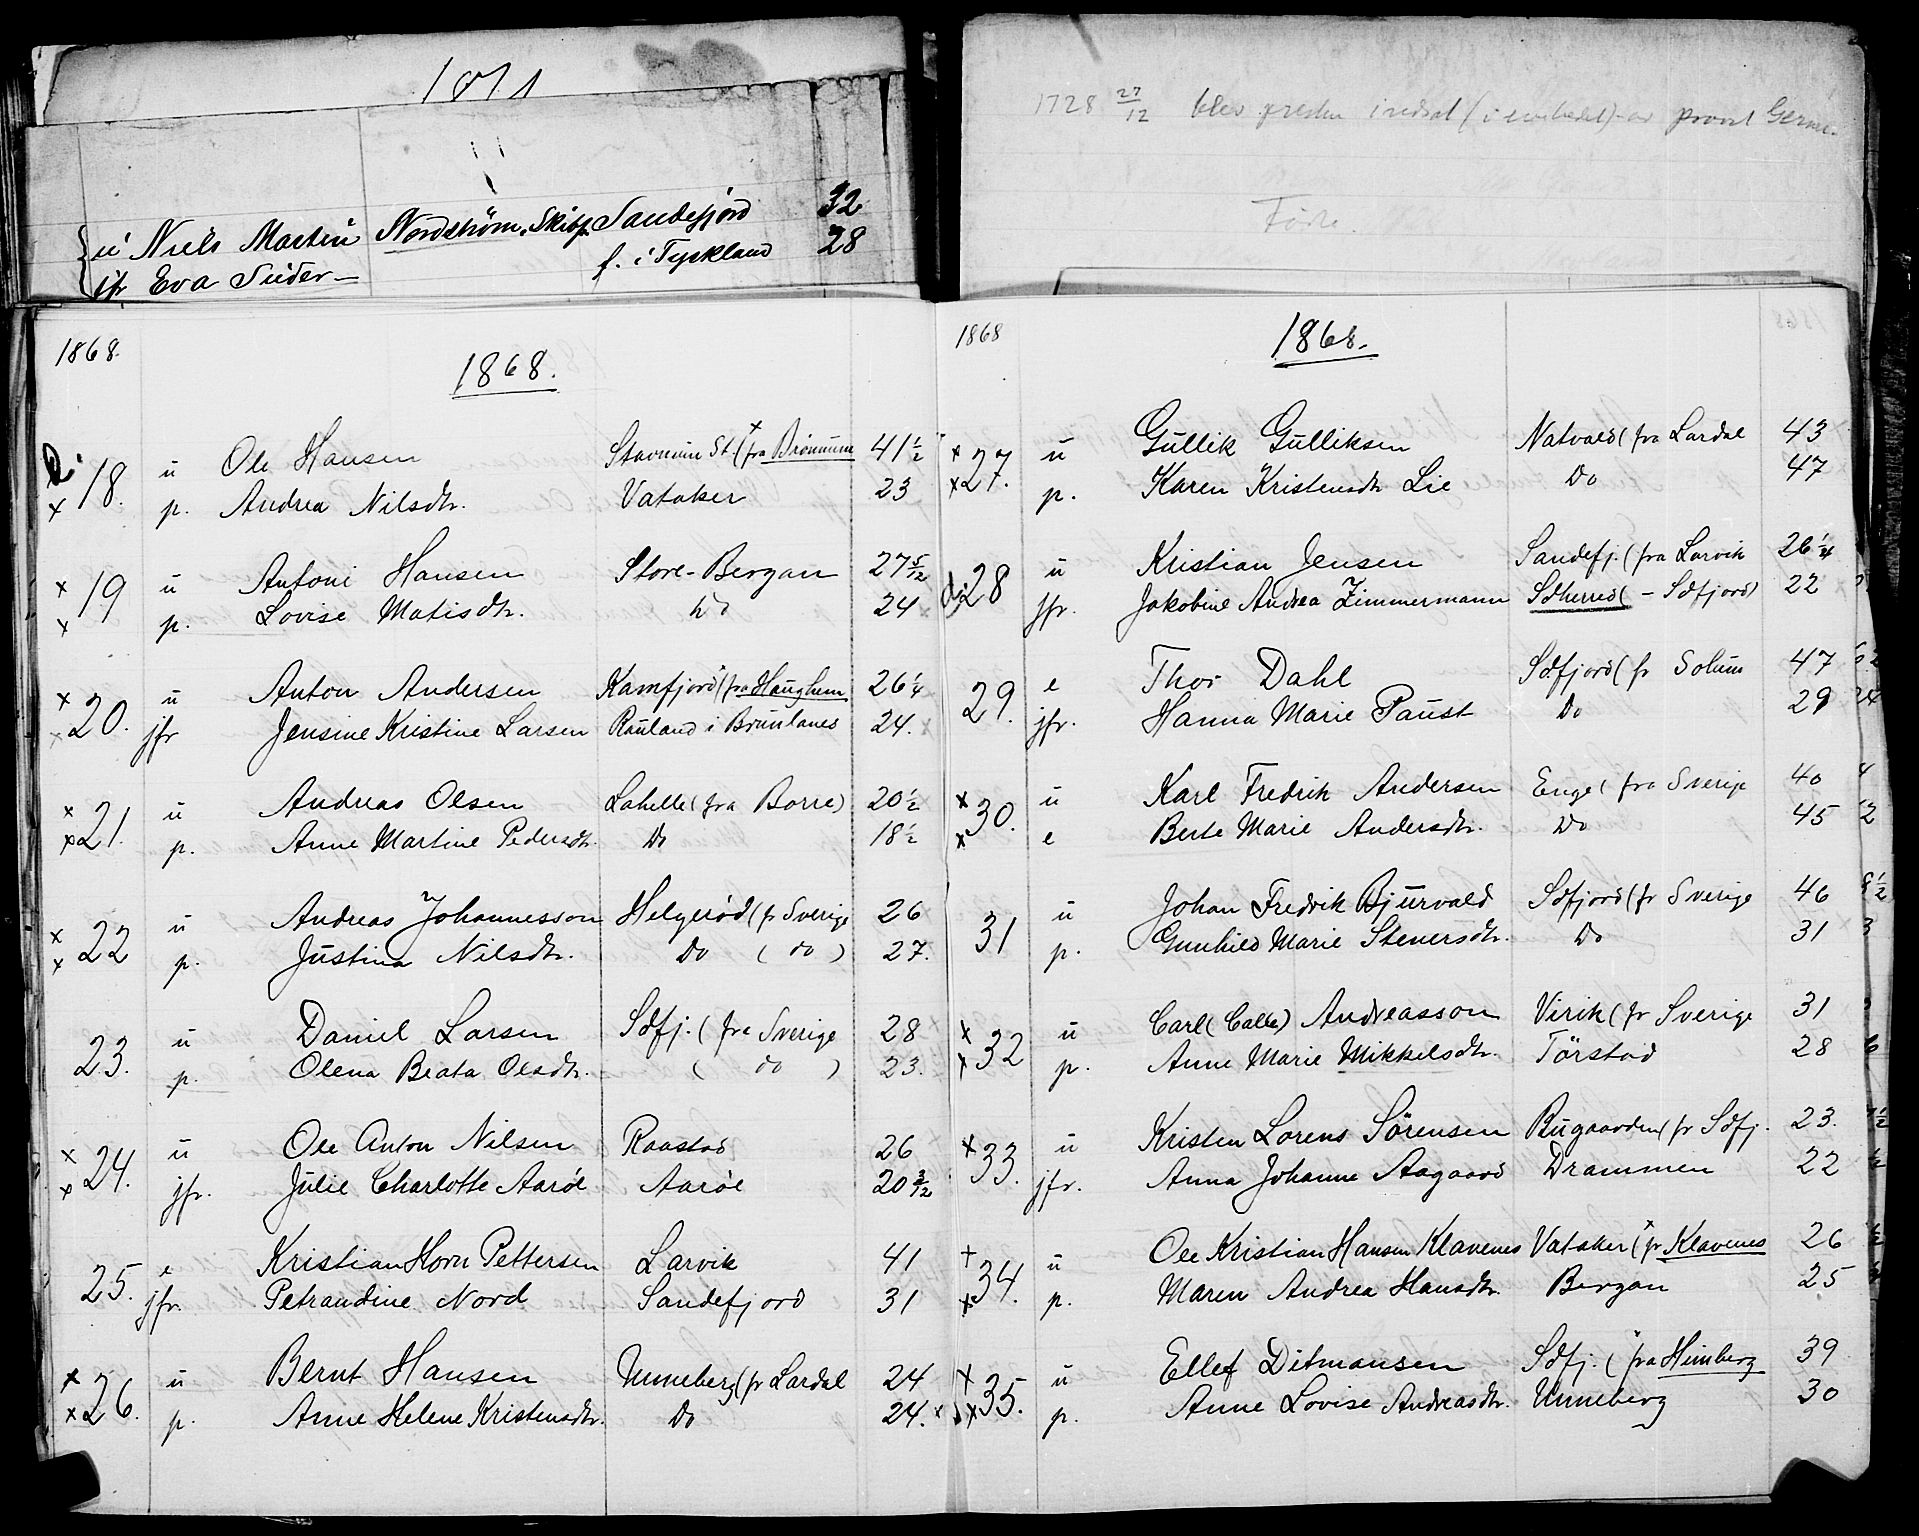 1871
u Niels Martin Nordström, Skibsf. Sandefjord 32
jfr Eva Suder — f. i Tyskland 28
1868.
1868.
x 18. u Ole Hansen Stavnum St. (fra Brönnum 41 1/2
x p. Andrea Nilsdtr. Vataker 23
x 19 u Antoni Hansen Store-Bergan 27 5/12
x p. Lovise Matisdtr. Do 24
x 20. u Anton Andersen Kamfjord (fra Haughem 26 1/4
x jfr Jensine Kristine Larsen Rauland i Brunlanes 24.
x 21. u Andreas Olsen Lahelle (fra Borre) 20 1/2
x p. Anne Martine Pedersdtr. Do 18 1/2
x 22 u Andreas Johannesson Helgerød (fr Sverige 26
x p. Justina Nilsdtr. Do (do) 27.
23. u Daniel Larsen Sdfj. (fra Sverige 28
p. Olena Beata Olsdtr. (do) 23.
x 24. u Ole Anton Nilsen Raastad 26
x jfr. Julie Charlotte Aarøe Aarøe 20 3/12
25. e Kristian Horn Pettersen Larvik 41
jfr. Petrandine Nord Sandefjord 31
x 26. u Bernt Hansen Unneberg (fr Lardal 24
x p. Anne Helene Kristensdtr. Do 24.
1728 27/12 blev presten indsat (i embedet) av provst
1868
1868.
x 27. u Gullik Gulliksen Natvald (fra Lardal 43
x p. Karen Kristensdtr Lie Do 47
28 u Kristian Jensen Sandefj. (fra Larvik 26 1/4
jfr. Jakobine Andrea Zimmermann Sdherred (– Sdfjord) 22
29. e Thor Dahl Sdfjord (fr Solum 47
jfr. Hanna Marie Paust Do 29
x 30. u Karl Fredrik Andersen Enge (fra Sverige 40
x e Berte Marie Andersdtr. Do 45
31 u Johan Fredrik Bjurvald Sdfjord (fr Sverige 46
p. Gunhild Marie Stenersdtr. Do 31
x 32 u Carl (Calle) Andreasson Virik (fr Sverige 31
x p. Anne Marie Mikkelsdtr. Törstad 28
x 33. u Kristen Lorens Sörensen Bugaarden (fr Sdfj. 23.
jfr. Anna Johanne Aagaard Drammen 22
+ 34. u Ole Kristian Hansen Klavenes Vataker (fr Klavenes 26
x p. Maren Andrea Hansdtr. Bergan 25
x 35. u Ellef Ditmansen Sdfj. (fra Himberg 39
x p. Anne Lovise Andreasdtr. Unneberg 30